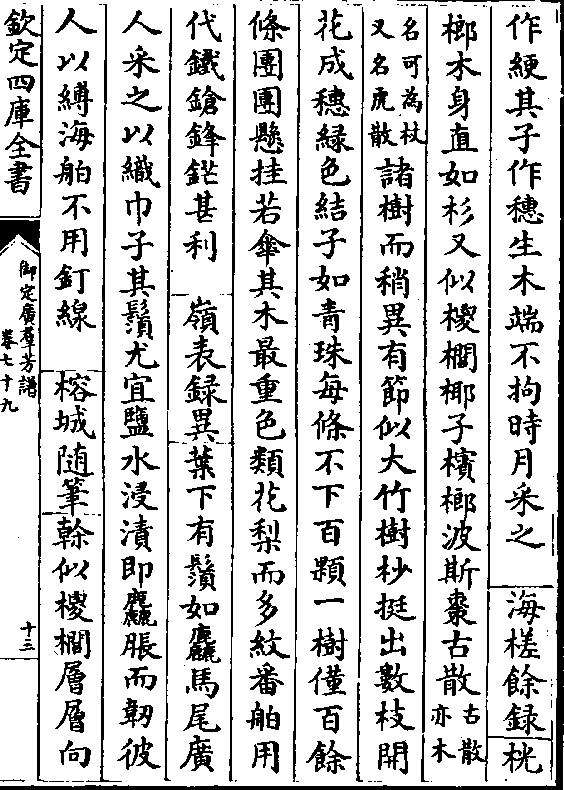 作綆其子作穗生木端不拘時月采之　海槎餘録桄
榔木身直如杉又似椶櫚椰子檳榔波斯棗古散古散亦木
名可為杖又名虎散諸樹而稍異有節似大竹樹杪挺出數枝開
花成穗緑色結子如青珠每條不下百顆一樹僅百餘
條團團懸挂若傘其木最重色類花梨而多紋番舶用
代鐵鎗鋒鋩甚利　嶺表録異葉下有鬚如麤馬尾廣
人采之以織巾子其鬚尤宜鹽水浸漬即麤脹而韌彼
人以縛海舶不用釘線　榕城随筆幹似椶櫚層層向
欽定四庫全書
御定廣羣芳譜
卷七十九
十三